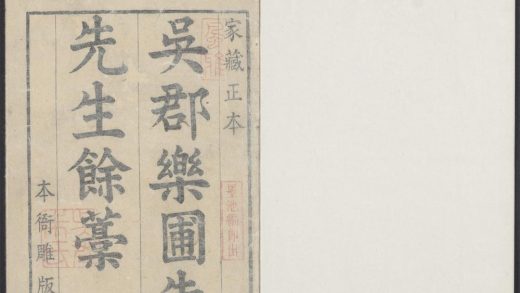 家藏正本
吳郡樂圃
先生餘藁
本衙雕版